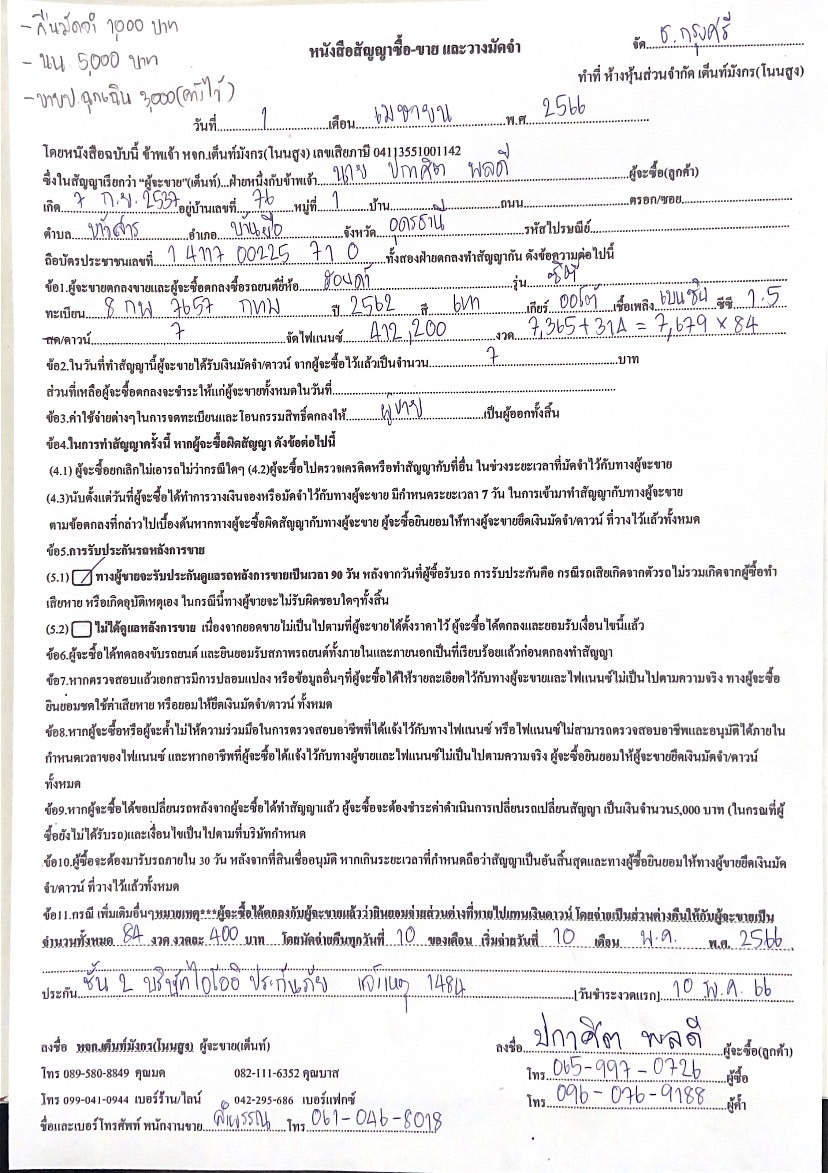 - คืนมัดจำ 1,000 บาท
- นน 5,000 บาท
- ขายป.ฉุกเฉิน 3,000 (ค้างไว้)
หนังสือสัญญาซื้อ-ขาย และวางมัดจำ
จัด ธ.กรุงศรี
ทำที่ ห้างหุ้นส่วนจำกัด เต็นท์มังกร(โนนสูง)
วันที่ 1 เดือน เมษายน พ.ศ. 2566
โดยหนังสือฉบับนี้ ข้าพเจ้า หจก.เต็นท์มังกร(โนนสูง) เลขเสียภาษี 04113551001142
ซึ่งในสัญญาเรียกว่า "ผู้จะขาย"(เต็นท์)...ฝ่ายหนึ่งกับข้าพเจ้า นาย ปกาศิต พลดี ผู้จะซื้อ(ลูกค้า)
เกิด 7 ก.ย. 2537 อยู่บ้านเลขที่ 76 หมู่ที่ 1 บ้าน ถนน ตรอก/ซอย
ตำบล อำเภอ บ้านผือ จังหวัด อุดรธานี รหัสไปรษณีย์
ถือบัตรประชาชนเลขที่ 1 4117 00225 71 0 ทั้งสองฝ่ายตกลงทำสัญญากัน ดังข้อความต่อไปนี้
ข้อ1.ผู้จะขายตกลงขายและผู้จะซื้อตกลงซื้อรถยนต์ยี่ห้อ ฮอนด้า รุ่น ซิตี้
ทะเบียน 8 กพ 7657 กทม ปี 2562 สี เทา เกียร์ ออโต้ เชื้อเพลิง เบนซิน ซีซี 1.5
สด/ดาวน์ 7 จัดไฟแนนซ์ 412,200 งวด 7,365+314 = 7,679 x 84
ข้อ2.ในวันที่ทำสัญญานี้ผู้จะขายได้รับเงินมัดจำ/ดาวน์ จากผู้จะซื้อไว้แล้วเป็นจำนวน 7 บาท
ส่วนที่เหลือผู้จะซื้อตกลงจะชำระให้แก่ผู้จะขายทั้งหมดในวันที่
ข้อ3.ค่าใช้จ่ายต่างๆในการจดทะเบียนและโอนกรรมสิทธิ์ตกลงให้ ผู้ขาย เป็นผู้ออกทั้งสิ้น
ข้อ4.ในการทำสัญญาครั้งนี้ หากผู้จะซื้อผิดสัญญา ดังข้อต่อไปนี้
(4.1) ผู้จะซื้อยกเลิกไม่เอารถไม่ว่ากรณีใดๆ (4.2)ผู้จะซื้อไปตรวจเครดิตหรือทำสัญญากับที่อื่น ในช่วงระยะเวลาที่มัดจำไว้กับทางผู้จะขาย
(4.3)นับตั้งแต่วันที่ผู้จะซื้อได้ทำการวางเงินจองหรือมัดจำไว้กับทางผู้จะขาย มีกำหนดระยะเวลา 7 วัน ในการเข้ามาทำสัญญากับทางผู้จะขาย
ตามข้อตกลงที่กล่าวไปเบื้องต้นหากทางผู้จะซื้อผิดสัญญากับทางผู้จะขาย ผู้จะซื้อยินยอมให้ทางผู้จะขายยึดเงินมัดจำ/ดาวน์ ที่วางไว้แล้วทั้งหมด
ข้อ5.การรับประกันรถหลังการขาย
(5.1) ทางผู้ขายจะรับประกันดูแลรถหลังการขายเป็นเวลา 90 วัน หลังจากวันที่ผู้ซื้อรับรถ การรับประกันคือ กรณีรถเสียเกิดจากตัวรถไม่รวมเกิดจากผู้ซื้อทำ
เสียหาย หรือเกิดอุบัติเหตุเอง ในกรณีนี้ทางผู้ขายจะไม่รับผิดชอบใดๆทั้งสิ้น
(5.2) ไม่ได้ดูแลหลังการขาย เนื่องจากยอดขายไม่เป็นไปตามที่ผู้จะขายได้ตั้งราคาไว้ ผู้จะซื้อได้ตกลงและยอมรับเงื่อนไขนี้แล้ว
ข้อ6.ผู้จะซื้อได้ทดลองขับรถยนต์ และยินยอมรับสภาพรถยนต์ทั้งภายในและภายนอกเป็นที่เรียบร้อยแล้วก่อนตกลงทำสัญญา
ข้อ7.หากตรวจสอบแล้วเอกสารมีการปลอมแปลง หรือข้อมูลอื่นๆที่ผู้จะซื้อได้ให้รายละเอียดไว้กับทางผู้จะขายและไฟแนนซ์ไม่เป็นไปตามความจริง ทางผู้จะซื้อ
ยินยอมชดใช้ค่าเสียหาย หรือยอมให้ยึดเงินมัดจำ/ดาวน์ ทั้งหมด
ข้อ8.หากผู้จะซื้อหรือผู้จะค้ำไม่ให้ความร่วมมือในการตรวจสอบอาชีพที่ได้แจ้งไว้กับทางไฟแนนซ์ หรือไฟแนนซ์ไม่สามารถตรวจสอบอาชีพและอนุมัติได้ภายใน
กำหนดเวลาของไฟแนนซ์ และหากอาชีพที่ผู้จะซื้อได้แจ้งไว้กับทางผู้ขายและไฟแนนซ์ไม่เป็นไปตามความจริง ผู้จะซื้อยินยอมให้ผู้จะขายยึดเงินมัดจำ/ดาวน์
ทั้งหมด
ข้อ9.หากผู้จะซื้อได้ขอเปลี่ยนรถหลังจากผู้จะซื้อได้ทำสัญญาแล้ว ผู้จะซื้อจะต้องชำระค่าดำเนินการเปลี่ยนรถเปลี่ยนสัญญา เป็นเงินจำนวน5,000 บาท (ในกรณที่ผู้
ซื้อยังไม่ได้รับรถ)และเงื่อนไขเป็นไปตามที่บริษัทกำหนด
ข้อ10.ผู้ซื้อจะต้องมารับรถภายใน 30 วัน หลังจากที่สินเชื่ออนุมัติ หากเกินระยะเวลาที่กำหนดถือว่าสัญญาเป็นอันสิ้นสุดและทางผู้ซื้อยินยอมให้ทางผู้ขายยึดเงินมัด
จำ/ดาวน์ ที่วางไว้แล้วทั้งหมด
ข้อ11.กรณี เพิ่มเติมอื่นๆหมายเหตุ***ผู้จะซื้อได้ตกลงกับผู้จะขายแล้วว่ายินยอมจ่ายส่วนต่างที่หายไปแทนเงินดาวน์ โดยจ่ายเป็นส่วนต่างคืนให้กับผู้จะขายเป็น
จำนวนทั้งหมด 84 งวด งวดละ 400 บาท โดยนัดจ่ายคืนทุกวันที่ 10 ของเดือน เริ่มจ่ายวันที่ 10 เดือน พ.ค. พ.ศ. 2566
ประกัน ชั้น 2 บริษัทไอโออิ ประกันภัย แจ้งเหตุ 1484 [วันชำระงวดแรก] 10 พ.ค. 66
ลงชื่อ หจก.เต็นท์มังกร(โนนสูง) ผู้จะขาย(เต็นท์)
ลงชื่อ ปกาศิต พลดี ผู้จะซื้อ(ลูกค้า)
โทร 089-580-8849 คุณมด 082-111-6352 คุณบาส
โทร 065-997-0726 ผู้ซื้อ
โทร 099-041-0944 เบอร์ร้าน/ไลน์ 042-295-686 เบอร์แฟกซ์
โทร 096-076-9188 ผู้ค้ำ
ชื่อและเบอร์โทรศัพท์ พนักงานขาย โทร 061-046-8018